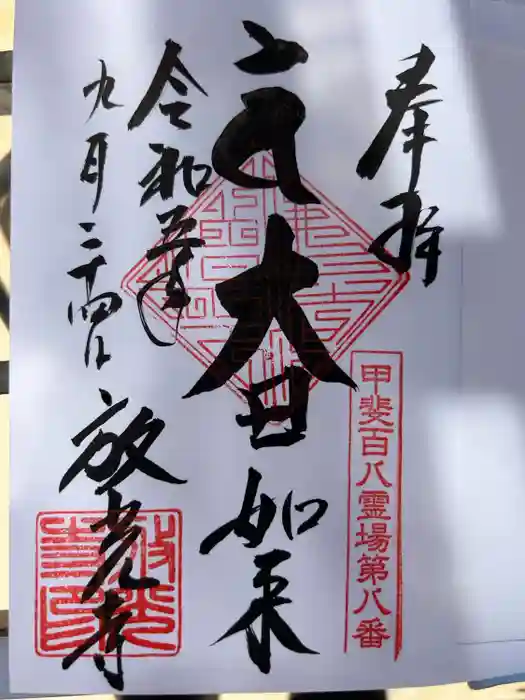 奉拝
甲斐百八霊場第八番
大日如来
令和
九月二十四日
放光寺